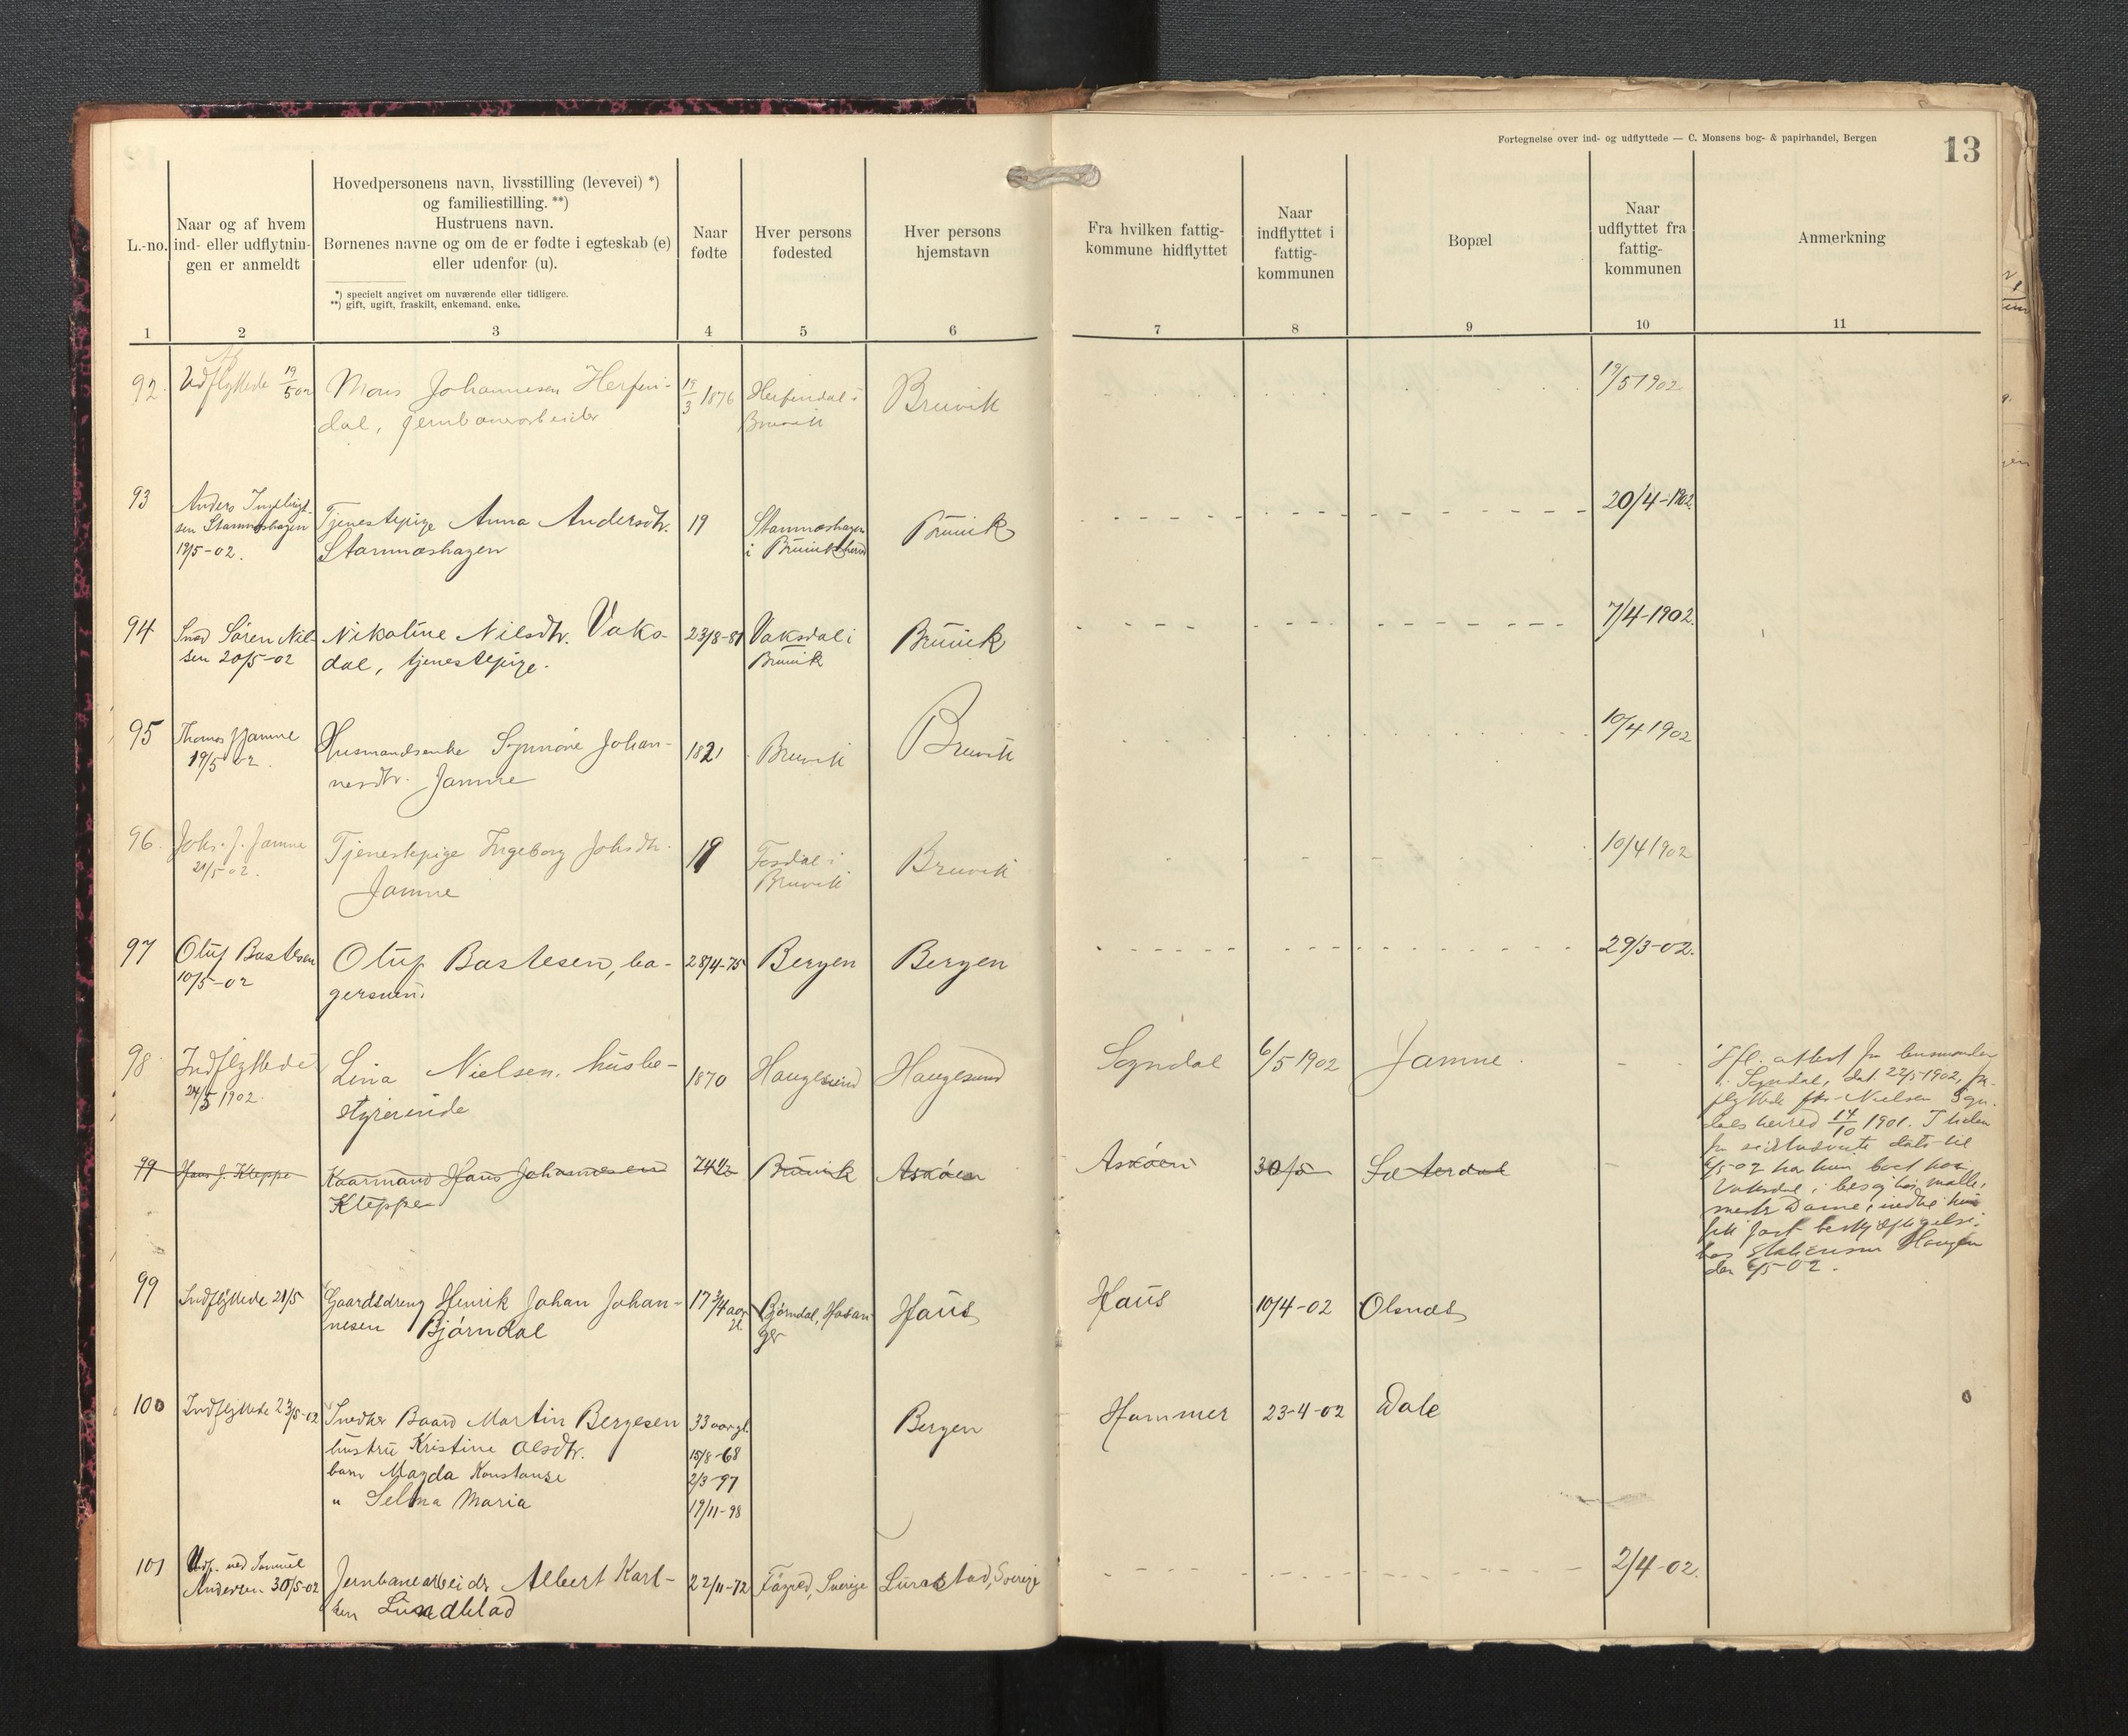 Fortegnelse over ind- og udflyttede — C. Monsens bog- & papirhandel, Bergen
13
L.-no.
Naar og af hvem
ind- eller udflytnin-
gen er anmeldt
Hovedpersonens navn, livsstilling (levevei) *)
og familiestilling. **)
Hustruens navn.
Børnenes navne og om de er fødte i egteskab (e)
eller udenfor (u).
*) specielt angivet om nuværende eller tidligere.
**) gift, ugift, fraskilt, enkemand, enke.
Naar
fødte
Hver persons
fødested
Hver persons
hjemstavn
Fra hvilken fattig-
kommune hidflyttet
Naar
indflyttet i
fattig-
kommunen
Bopæl
Naar
udflyttet fra
fattig-
kommunen
Anmerkning
1 2 3 4 5 6 7 8 9 10 11
92. Udflyttede 19/5 02 Mons Johannesen Herfin- 19/3 1876 Herfindal i Bruvik 19/5 1902
dal, jernbanearbeider Bruvik
93 Anders
sen Stamneshagen Tjenestepige Anna Andersdtr. 19 Stamneshagen Bruvik 20/4-1902.
19/5-02. Stamneshagen i Bruvik herred
94 Søren Nil- Nikoline Nilsdtr. Vaks- 23/8-81 Vaksdal i Bruvik 7/4-1902.
sen 20/5-02 dal, tjenestepige. Bruvik
95 Thomas J Jamne Husmandsenke Synnöve Johan- 1821 Bruvik Bruvik 10/4 1902
19/5 02. nesdtr. Jamne
96. Johs. J. Jamne Tjenestepige Ingeborg Johsdtr. 19 Fosdal i Bruvik 10/4 1902
21/5-02. Jamne Bruvik
97 Oluf Bastesen Oluf Bastesen, ba- 28/4-75 Bergen Bergen 29/3-02.
10/5-02 gersvend.
98. Indflyttede Lina Nielsen, husbe- 1870 Haugesund Haugesund Sogndal 6/5 1902 Jamne.
24/5 1902. styrerinde
Ifl. attest fra lensmanden
i Sogndal, dat. 22/5 1902, fra-
flyttede frk. Nielsen Sogn-
dals herred 14/10 1901. I tiden
fra sidstnævnte dato til
6/5-02 har hun boet paa
Vaksdal i besøg hos
mester Dame, indtil hun
fik fast beskjæftigelse
hos Haugen
den 6/5-02.
99 Hans J. Kleppe Kaarmand Hans Johannesen 74 1/2 Bruvik Askøen Askøen 30/5 Sæterdal
Kleppe
99 Indflyttede 21/5 Gaardsdreng Henrik Johan Johan- 17 3/4 aar Bjørndal, Hosan- Haus Haus 10/4-02 Olsnes
nesen Bjørndal gl. ger
100 Indflyttede 23/5-02 Snedker Baard Martin Bergesen 33 aar gl. Bergen Hammer 23-4-02 Dale
hustru Kristine Olsdtr. 15/8-68
barn Magda Konstanse 2/3-97
" Selma Maria 19/11-98
101 Udf. ved Samuel Jernbanearbeidr Albert Karl- 22/11-72 Fägred, Sverige Lurastad, Sverige 2/4-02.
Andersen 30/5-02 sen Lundblad